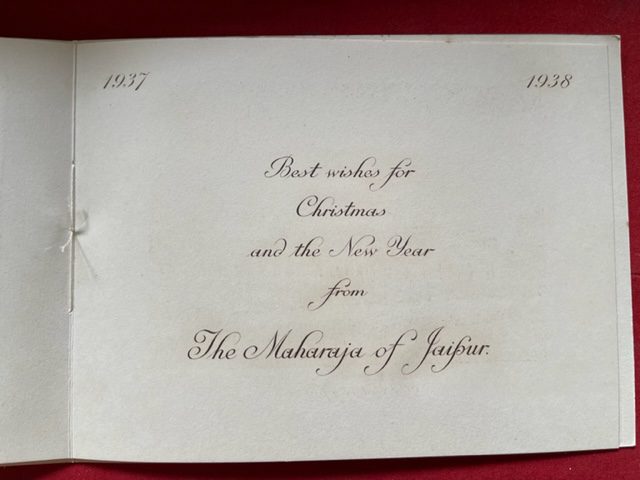 1937 1938
Best wishes for
Christmas
and the New Year
from
The Maharaja of Jaipur.